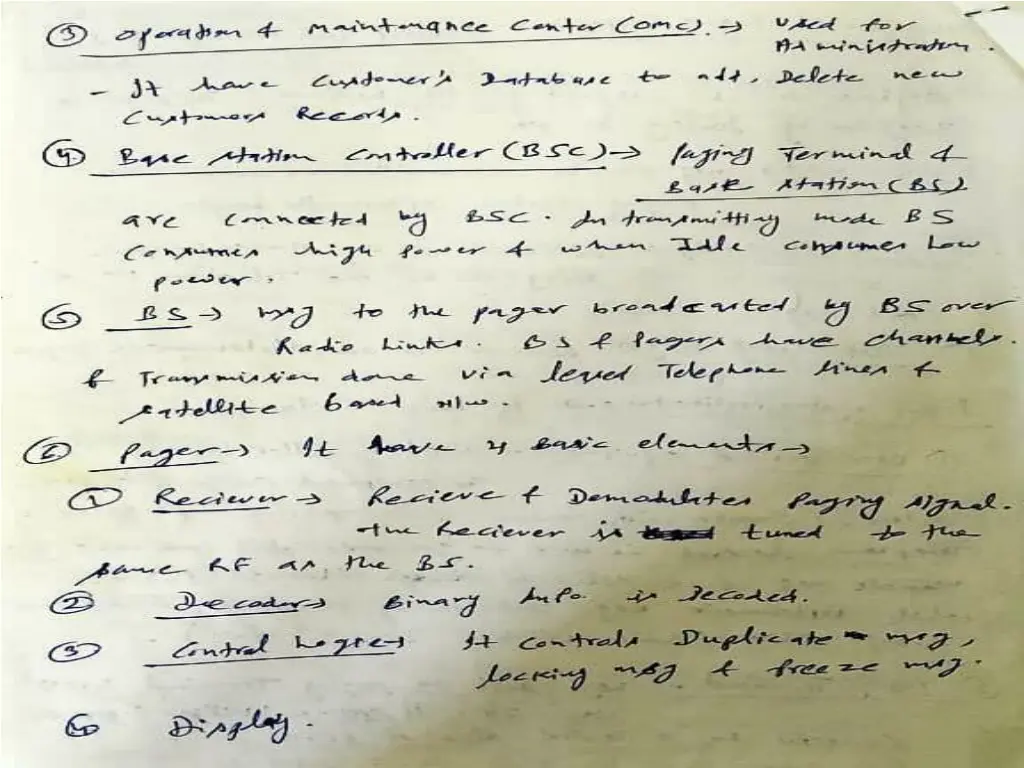 ③ Operation & Maintenance Center (OMC). → Used for
Administration.
- It have Customer's Database to add, Delete new
Customers Records.
④ Base Station Controller (BSC) → Paging Terminal &
Base Station (BS)
are connected by BSC. In transmitting mode BS
Consumes high power & when Idle consumes Low
power.
⑤ BS → msg to the pager broadcasted by BS over
Radio Links. BS & Pagers have channels.
& Transmission done via Telephone lines &
satellite based n/w.
⑥ Pager → It have 4 Basic elements →
① Reciever → Recieve & Demodulates Paging signal.
the Reciever is tuned to the
same RF as the BS.
② Decoder → Binary Info. is Decoded.
③ Control Logic → It controls Duplicate msg,
locking msg & freeze msg.
④ Display.